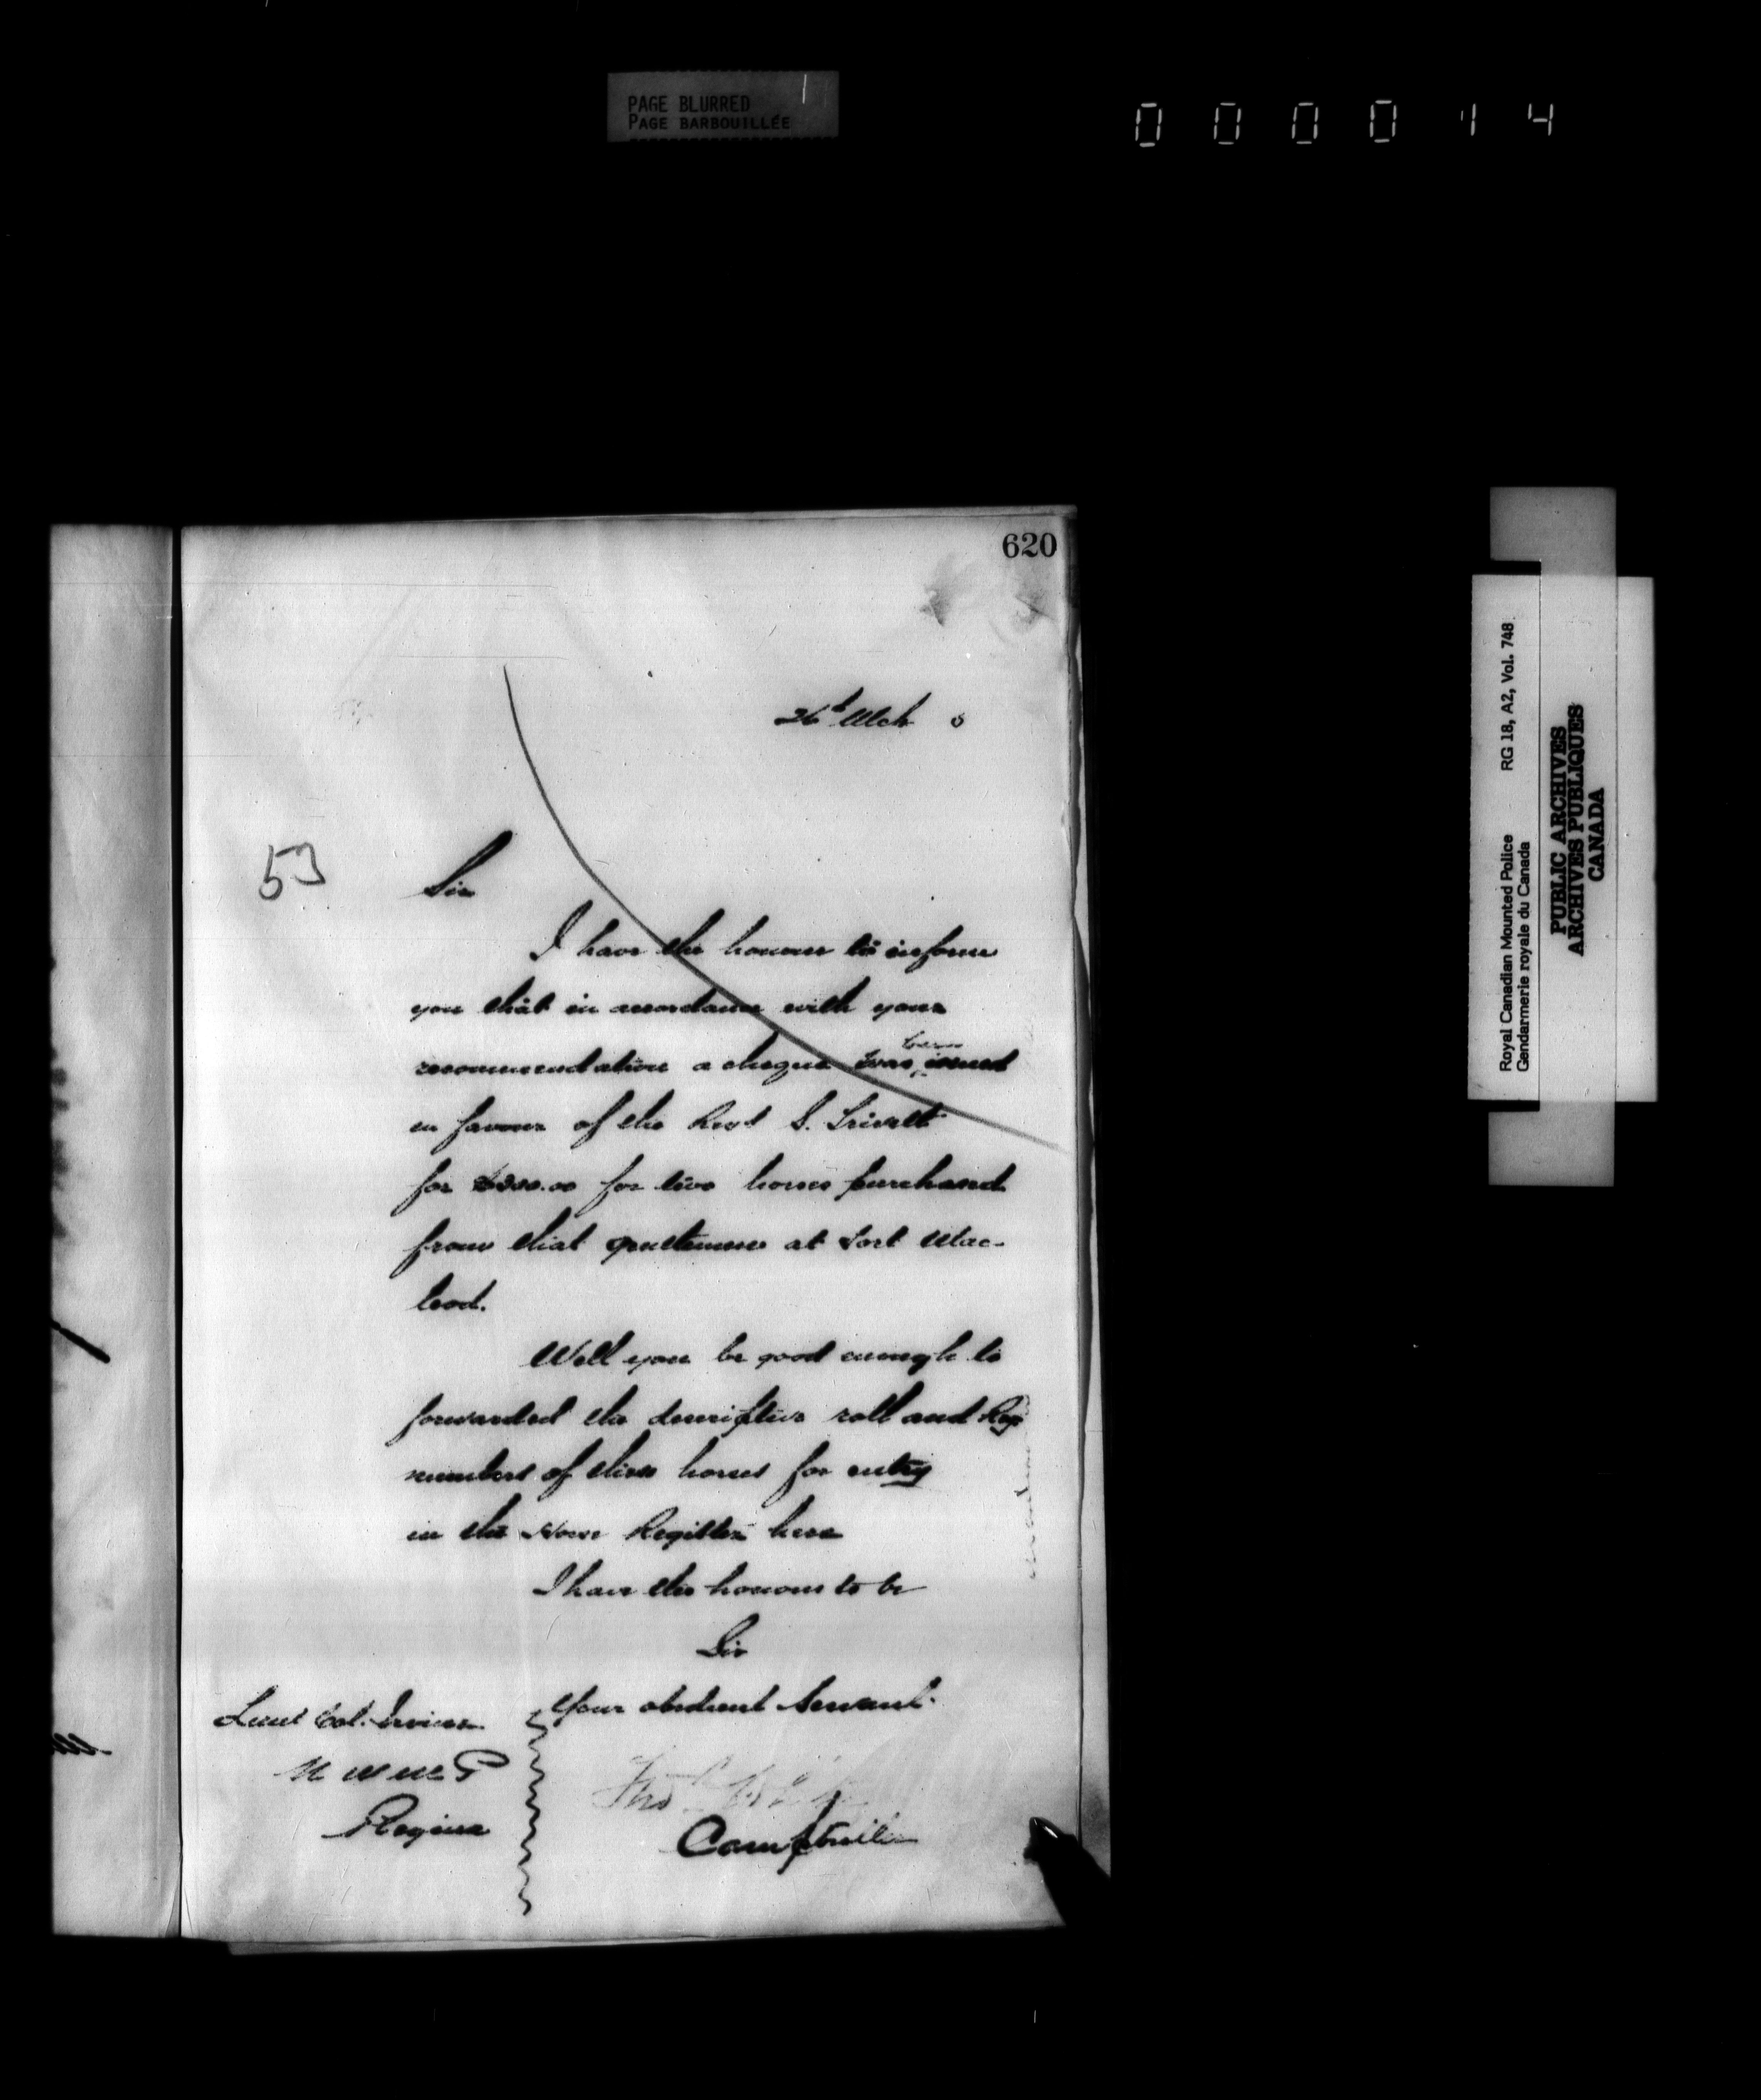 PAGE BLURRED
PAGE BARBOUILLÉE
0 0 0 0 1 4
620
26th Mch
53
Sir
I have the honour to inform
you that in accordance with your
recommendation a cheque has been issued
in favour of the Revd S. Trivett
for $300.00 for two horses purchased
from that gentleman at Fort Mac-
leod.
Will you be good enough to
forwarded the descriptive roll and Reg
numbers of these horses for entry
in the Horse Register here
I have the honour to be
Sir
Your obedient Servant.
Lieut Col. Irvine
N W M P
Regina
Comptroller
Royal Canadian Mounted Police RG 18, A2, Vol. 748
Gendarmerie royale du Canada
PUBLIC ARCHIVES
ARCHIVES PUBLIQUES
CANADA